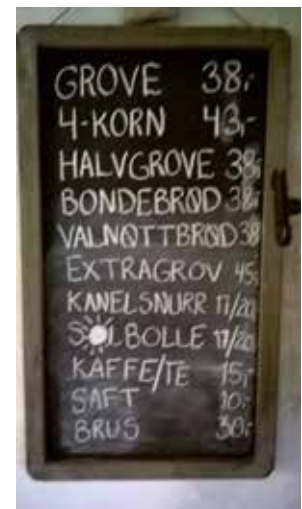 GROVE 38,-
4-KORN 43,-
HALVGROVE 38,-
BONDEBRØD 38,-
VALNØTTBRØD 38
EXTRAGROV 45,-
KANELSNURR 17/20,-
SOLBOLLE 17/20,-
KAFFE/TE 15,-
SAFT 10,-
BRUS 30,-